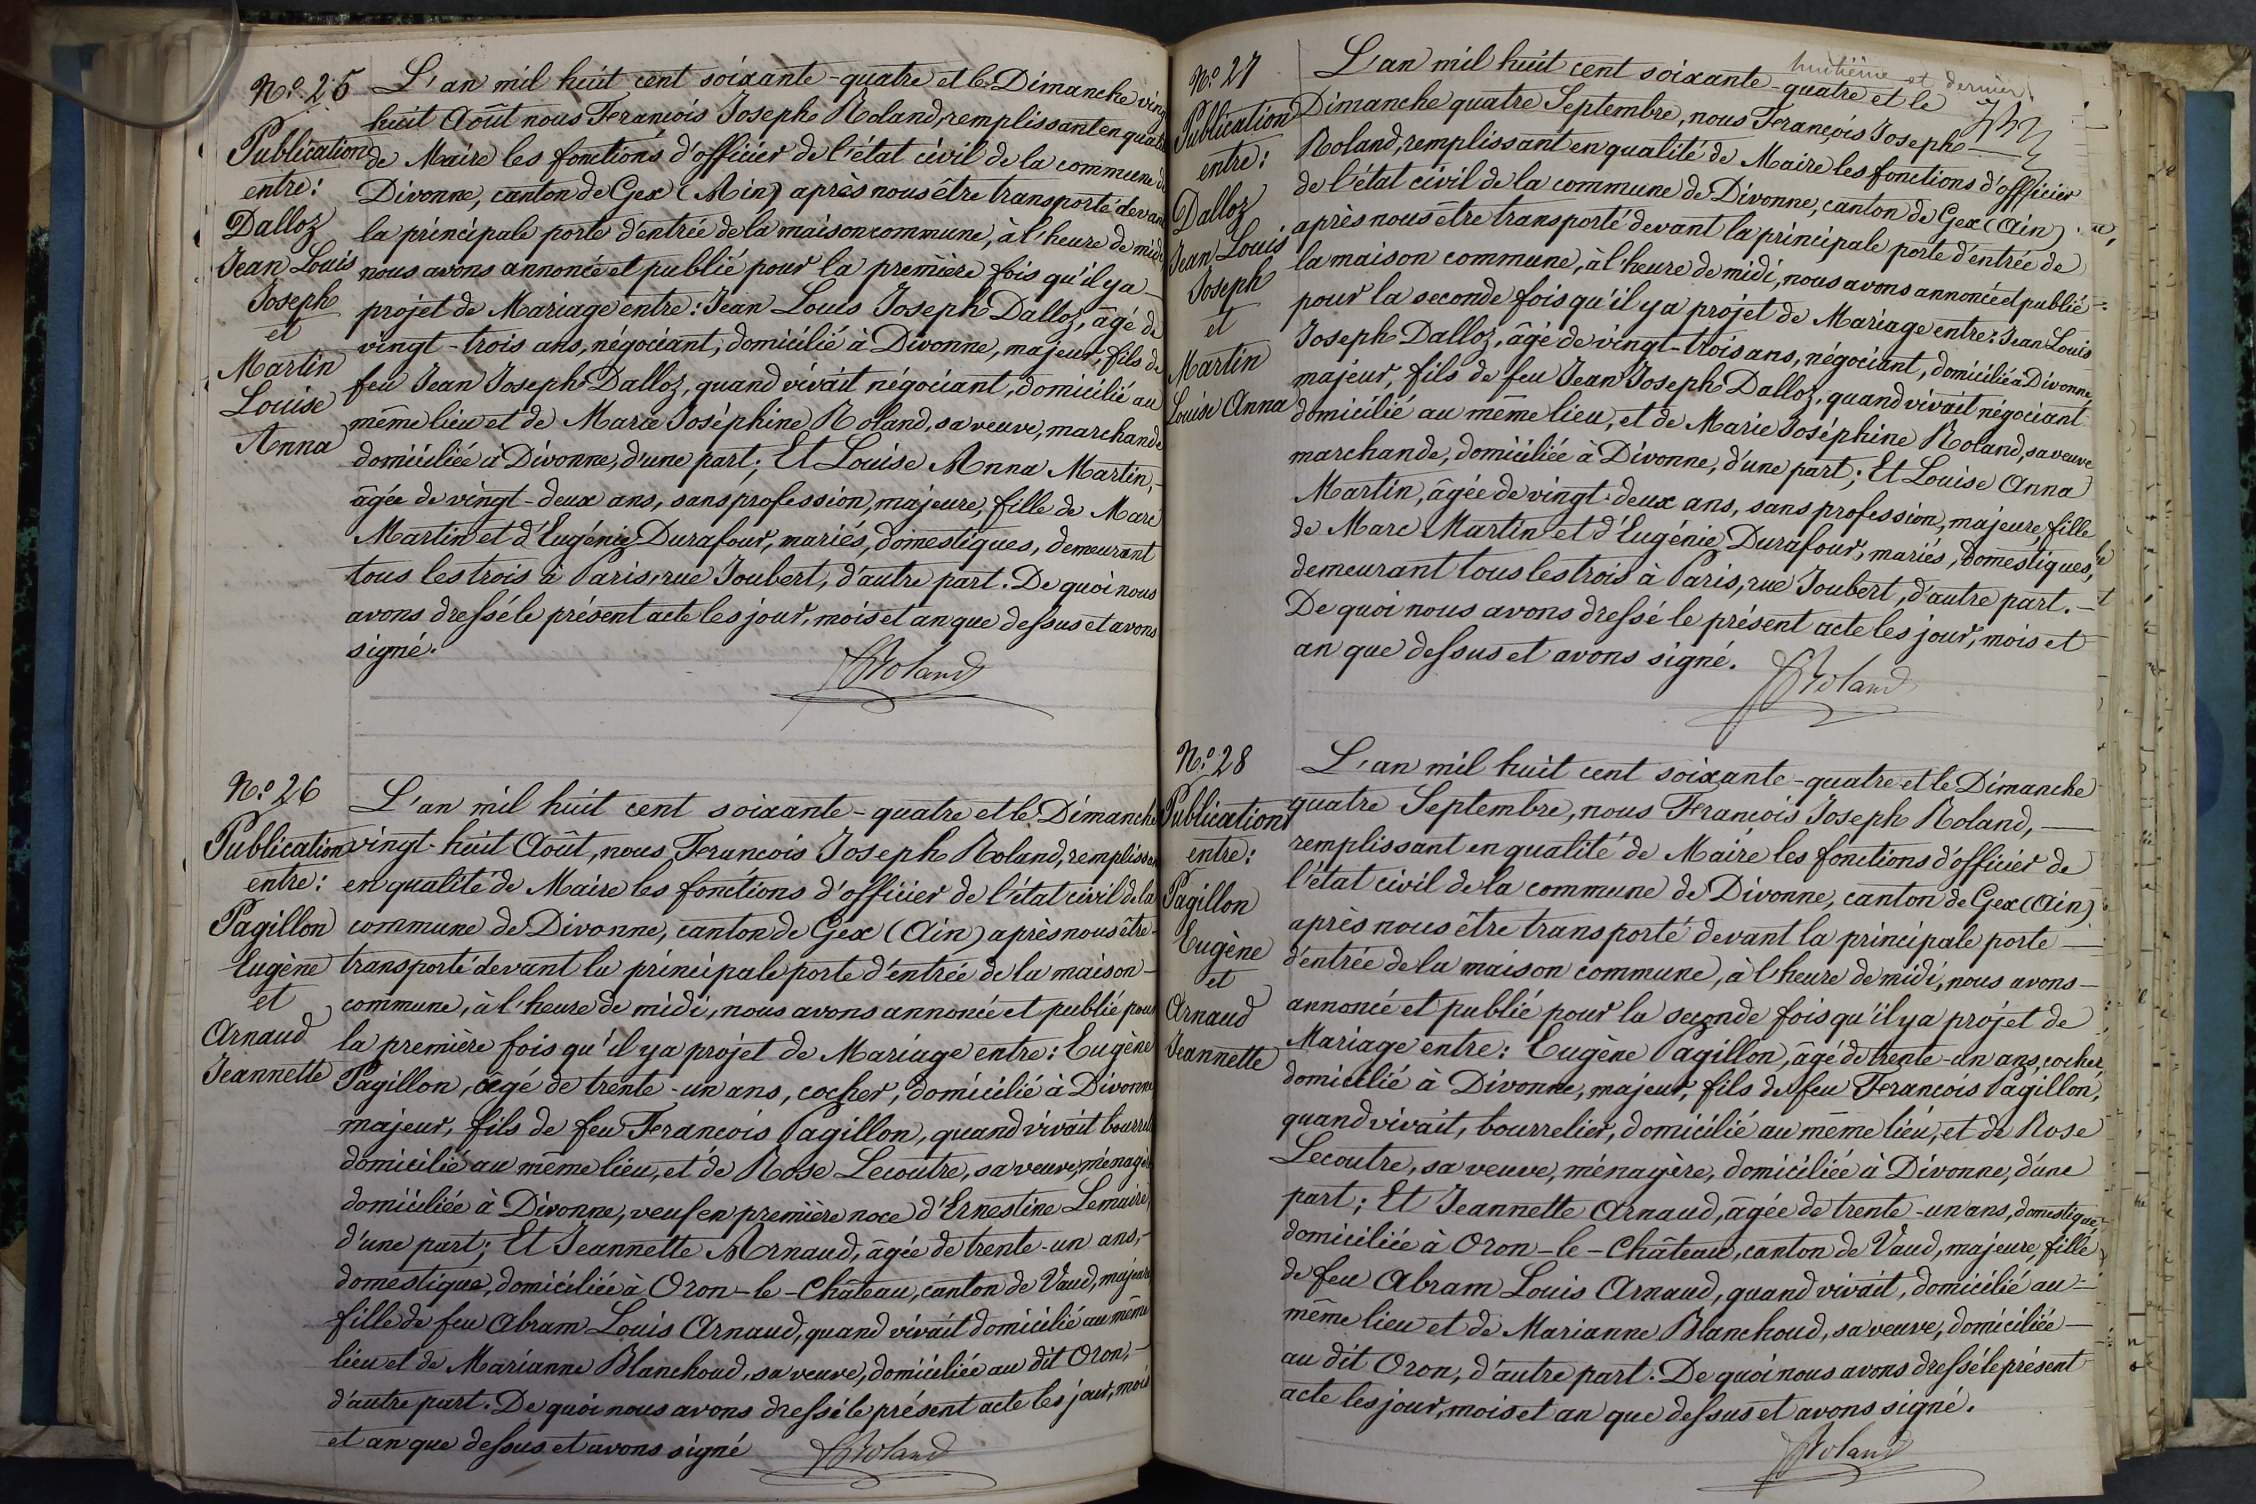 N.º 25
Publication
entre:
Dalloz
Jean Louis
Joseph
et
Martin
Louise
Anna
L'an mil huit cent soixante-quatre et le Dimanche vingt
huit Août nous François Joseph Roland, remplissant en qualité
de Maire les fonctions d'officier de l'état civil de la commune de
Divonne, canton de Gex (Ain) après nous être transporté devant
la principale porte d'entrée de la maison commune, à l'heure de midi
nous avons annoncé et publié pour la première fois qu'il y a
projet de Mariage entre: Jean Louis Joseph Dalloz, âgé de
vingt-trois ans, négociant, domicilié à Divonne, majeur, fils de
feu Jean Joseph Dalloz, quand vivait négociant, domicilié au
même lieu et de Marie Joséphine Roland, sa veuve, marchande
domiciliée à Divonne, d'une part; Et Louise Anna Martin,
âgée de vingt-deux ans, sans profession, majeure, fille de Marc
Martin et d'Eugénie Durafour, mariés, domestiques, demeurant
tous les trois à Paris, rue Joubert, d'autre part. De quoi nous
avons dressé le présent acte les jour, mois et an que dessus et avons
signé.
Roland
N.º 26
Publication
entre:
Pagillon
Eugène
et
Arnaud
Jeannette
L'an mil huit cent soixante-quatre et le Dimanche
vingt-huit Août, nous François Joseph Roland, remplissant
en qualité de Maire les fonctions d'officier de l'état civil de la
commune de Divonne, canton de Gex (Ain) après nous être
transporté devant la principale porte d'entrée de la maison
commune, à l'heure de midi, nous avons annoncé et publié pour
la première fois qu'il y a projet de Mariage entre: Eugène
Pagillon, âgé de trente-un ans, cocher, domicilié à Divonne
majeur, fils de feu François Pagillon, quand vivait bourrelier
domicilié au même lieu, et de Rose Lecoutre, sa veuve, ménagère
domiciliée à Divonne, veuf en première noce d'Ernestine Lemaire,
d'une part; Et Jeannette Arnaud, âgée de trente-un ans,
domestique, domiciliée à Oron-le-Château, canton de Vaud, majeure
fille de feu Abram Louis Arnaud, quand vivait domicilié au même
lieu et de Marianne Blanchoud, sa veuve, domiciliée au dit Oron,
d'autre part. De quoi nous avons dressé le présent acte les jour, mois
et an que dessus et avons signé
Roland
huitième et dernier
N.º 27
Publication
entre:
Dalloz
Jean Louis
Joseph
et
Martin
Louise Anna
L'an mil huit cent soixante-quatre et le
Dimanche quatre Septembre, nous François Joseph
Roland, remplissant en qualité de Maire les fonctions d'officier
de l'état civil de la commune de Divonne, canton de Gex (Ain)
après nous être transporté devant la principale porte d'entrée de
la maison commune, à l'heure de midi, nous avons annoncé et publié
pour la seconde fois qu'il y a projet de Mariage entre: Jean Louis
Joseph Dalloz, âgé de vingt-trois ans, négociant, domicilié à Divonne,
majeur, fils de feu Jean Joseph Dalloz, quand vivait négociant
domicilié au même lieu, et de Marie Joséphine Roland, sa veuve
marchande, domiciliée à Divonne, d'une part; Et Louise Anna
Martin, âgée de vingt-deux ans, sans profession, majeure, fille
de Marc Martin et d'Eugénie Durafour, mariés, domestiques,
demeurant tous les trois à Paris, rue Joubert, d'autre part.
De quoi nous avons dressé le présent acte les jour, mois et
an que dessus et avons signé.
Roland
N.º 28
Publication
entre:
Pagillon
Eugène
et
Arnaud
Jeannette
L'an mil huit cent soixante-quatre et le Dimanche
quatre Septembre, nous François Joseph Roland,
remplissant en qualité de Maire les fonctions d'officier de
l'état civil de la commune de Divonne, canton de Gex (Ain)
après nous être transporté devant la principale porte
d'entrée de la maison commune, à l'heure de midi, nous avons
annoncé et publié pour la seconde fois qu'il y a projet de
Mariage entre: Eugène Pagillon, âgé de trente-un ans, cocher,
domicilié à Divonne, majeur, fils de feu François Pagillon,
quand vivait, bourrelier, domicilié au même lieu, et de Rose
Lecoutre, sa veuve, ménagère, domiciliée à Divonne, d'une
part; Et Jeannette Arnaud, âgée de trente-un ans, domestique
domiciliée à Oron-le-Château, canton de Vaud, majeure, fille
de feu Abram Louis Arnaud, quand vivait, domicilié au
même lieu et de Marianne Blanchoud, sa veuve, domiciliée
au dit Oron, d'autre part. De quoi nous avons dressé le présent
acte les jour, mois et an que dessus et avons signé.
Roland